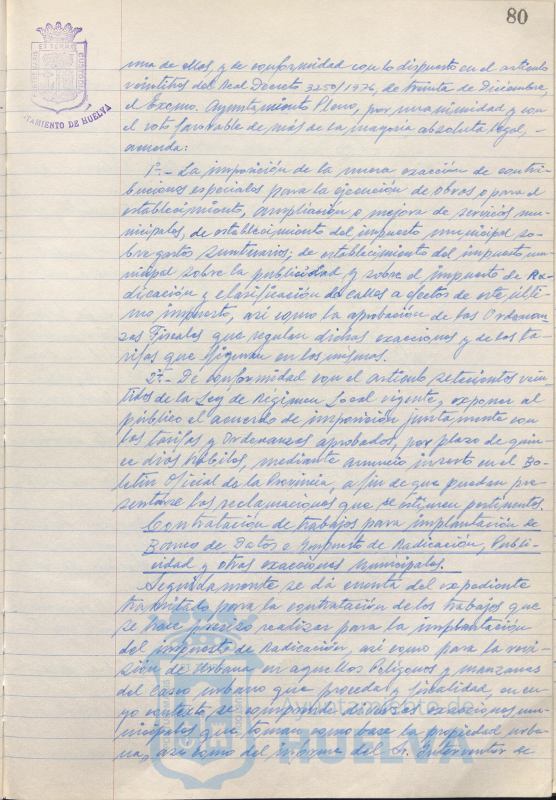 80
AYUNTAMIENTO DE HUELVA
una de ellas, y de conformidad con lo dispuesto en el artículo
veintitres del Real Decreto 3250/1976, de treinta de Diciembre,
el Excmo. Ayuntamiento Pleno, por unanimidad y con
el voto favorable de más de la mayoría absoluta legal, -
acuerda:
1º.- La imposición de la nueva exacción de contri-
buciones especiales para la ejecución de obras o para el
establecimiento, ampliación o mejora de servicios mu-
nicipales, de establecimiento del impuesto municipal so-
bre gastos suntuarios; de establecimiento del impuesto mu-
nicipal sobre la publicidad y sobre el impuesto de Ra-
dicación y clasificación de calles a efectos de este últi-
mo impuesto, así como la aprobación de las Ordenan-
zas Fiscales que regulan dichas exacciones y de las ta-
rifas que figuran en las mismas.
2º.- De conformidad con el artículo setecientos vein-
tidos de la Ley de Régimen Local vigente, exponer al
público el acuerdo de imposición juntamente con
las tarifas y Ordenanzas aprobadas, por plazo de quin-
ce días hábiles, mediante anuncio inserto en el Bo-
letín Oficial de la Provincia, a fin de que puedan pre-
sentarse las reclamaciones que se estimen pertinentes.
Contratación de trabajos para implantación de
Banco de Datos e Impuesto de Radicación, Publi-
cidad y otras exacciones municipales.
Seguidamente se dá cuenta del expediente
tramitado para la contratación de los trabajos que
se hace preciso realizar para la implantación
del impuesto de Radicación, así como para la revi-
sión de Urbana en aquellos Polígonos y manzanas
del casco urbano que proceda y finalidad, en cu-
yo contexto se comprende diversas exacciones mu-
nicipales que toman como base la propiedad urba-
na, así como del informe del Sr. Interventor de
Ayuntamiento de
HUELVA